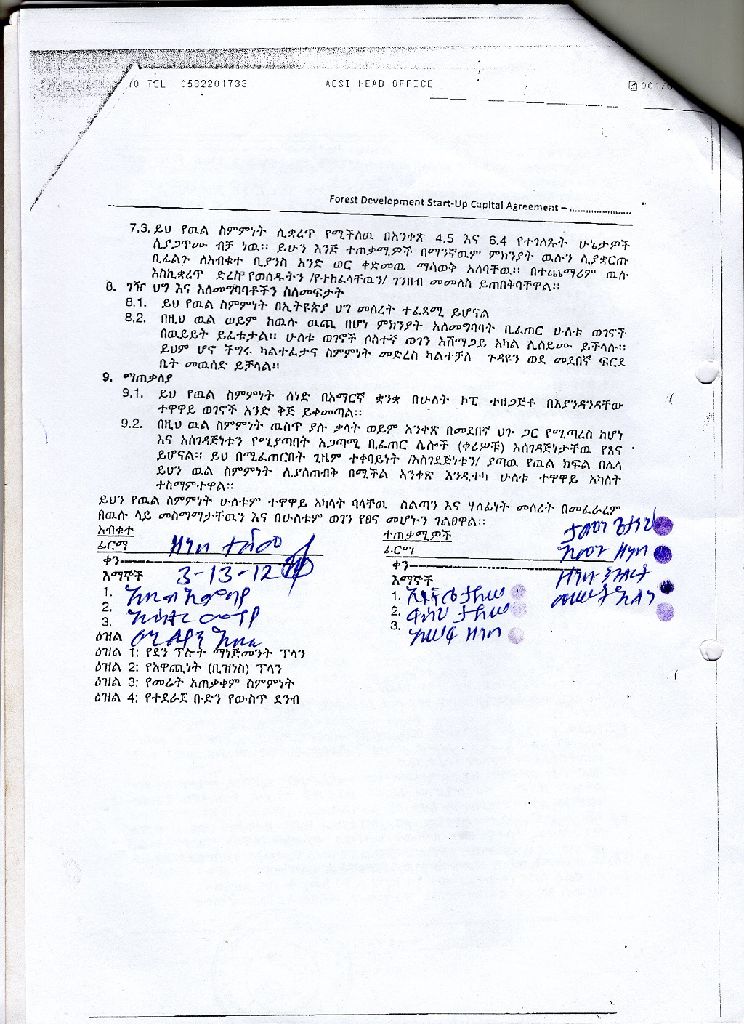 TEL 0582201733 ACSI HEAD OFFICE
Forest Development Start-Up Capital Agreement – ......................
7.3. ይህ የዉል ስምምነት ሊቋረጥ የሚችለዉ በአንቀጽ 4.5 እና 6.4 የተገለጹት ሁኔታዎች
ሲያጋጥሙ ብቻ ነዉ፡፡ ይሁን እንጅ ተጠቃሚዎች በማንኛዉም ምክንያት ዉሉን ሊያቋርጡ
ቢፈልጉ ለአብቁተ ቢያንስ አንድ ወር ቀድመዉ ማሳወቅ አለባቸዉ፡፡ በተጨማሪም ዉሉ
እስኪቋረጥ ድረስ የወሰዱትን /የተከፈላቸዉን/ ገንዘብ መመለስ ይጠበቅባቸዋል፡፡
8. ገዥ ህግ እና አለመግባባቶችን ስለመፍታት
8.1. ይህ የዉል ስምምነት በኢትዮጵያ ህግ መሰረት ተፈጻሚ ይሆናል
8.2. በዚህ ዉል ወይም ከዉሉ ዉጪ በሆነ ምክንያት አለመግባባት ቢፈጠር ሁለቱ ወገኖች
በዉይይት ይፈቱታል፡፡ ሁለቱ ወገኖች ሶስተኛ ወገን አሸማጋይ አካል ሊሰይሙ ይችላሉ፡፡
ይህም ሆኖ ችግሩ ካልተፈታና ስምምነት መድረስ ካልተቻለ ጉዳዩን ወደ መደበኛ ፍርድ
ቤት መዉሰድ ይቻላል፡፡
9. ማጠቃለያ
9.1. ይህ የዉል ስምምነት ሰነድ በአማርኛ ቋንቋ በሁለት ኮፒ ተዘጋጅቶ በእያንዳንዳቸው
ተዋዋይ ወገኖች አንድ ቅጅ ይቀመጣል፡፡
9.2. በዚህ ዉል ስምምነት ዉስጥ ያሉ ቃላት ወይም አንቀጽ በመደበኛ ህጉ ጋር የሚጣረስ ከሆነ
እና አስገዳጅነቱን የሚያጣባት አጋጣሚ ቢፈጠር ሌሎች (ቀሪዎቹ) አስገዳጅነታቸዉ የጸና
ይሆናል፡፡ ይህ በሚፈጠርበት ጊዜም ተቀባይነት /አስገደጅነቱን/ ያጣዉ የዉል ክፍል በሌላ
ይህን ዉል ስምምነት ሊያስጠብቅ በሚችል አንቀጽ እንዲተካ ሁለቱ ተዋዋይ አካላት
ተስማምተዋል፡፡
ይህን የዉል ስምምነት ሁለቱም ተዋዋይ አካላት ባላቸዉ ስልጣን እና ሃላፊነት መሰረት በመፈራረም
በዉሉ ላይ መስማማታቸዉን እና በሁለቱም ወገን የፀና መሆኑን ገልፀዋል፡፡
አብቁተ ተጠቃሚዎች
ፊርማ ፊርማ
ቀን 3-13-12 ቀን
እማኞች እማኞች
1. 1.
2. 2.
3. 3.
ዕዝል
ዕዝል 1: የደን ፕሎት ማነጅመንት ፕላን
ዕዝል 2: የአዋጪነት (ቢዝነስ) ፕላን
ዕዝል 3: የመሬት አጠቃቀም ስምምነት
ዕዝል 4: የተደራጀ ቡድን የውስጥ ደንብ